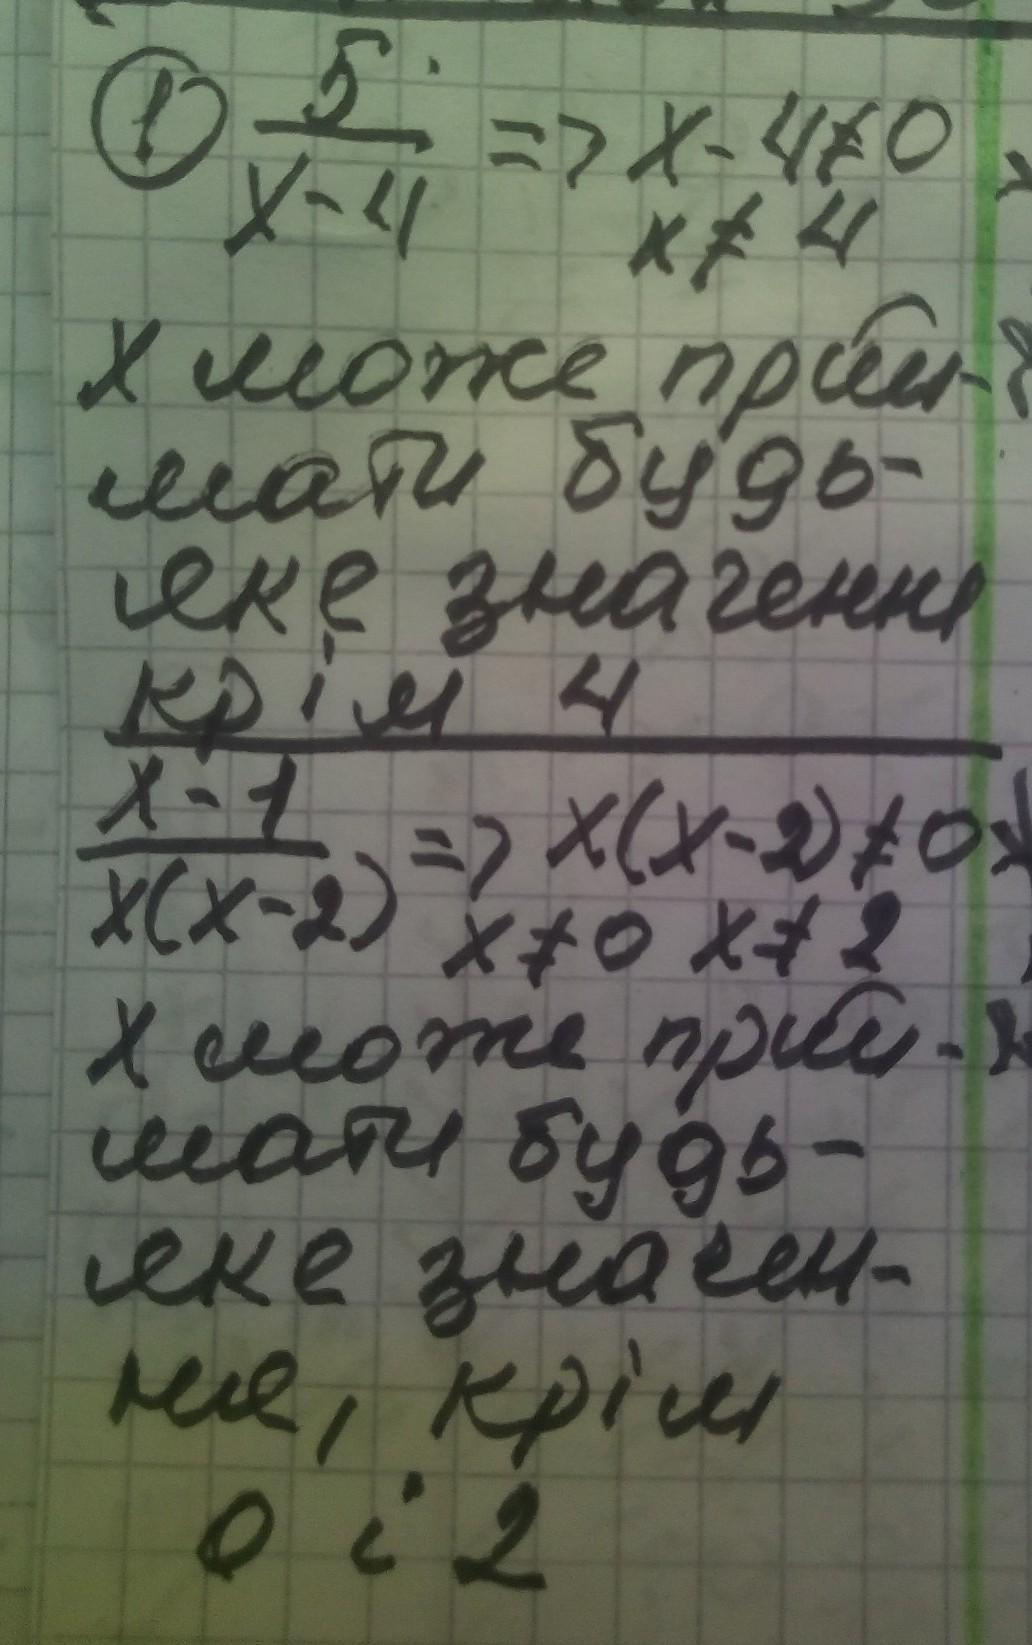 ① 5/(x-4) => x-4≠0
x≠4
x може прий-
мати будь-
яке значення
крім 4
(x-1)/(x(x-2)) => x(x-2)≠0
x≠0 x≠2
x може прий-
мати будь-
яке значен-
ня, крім
0 і 2